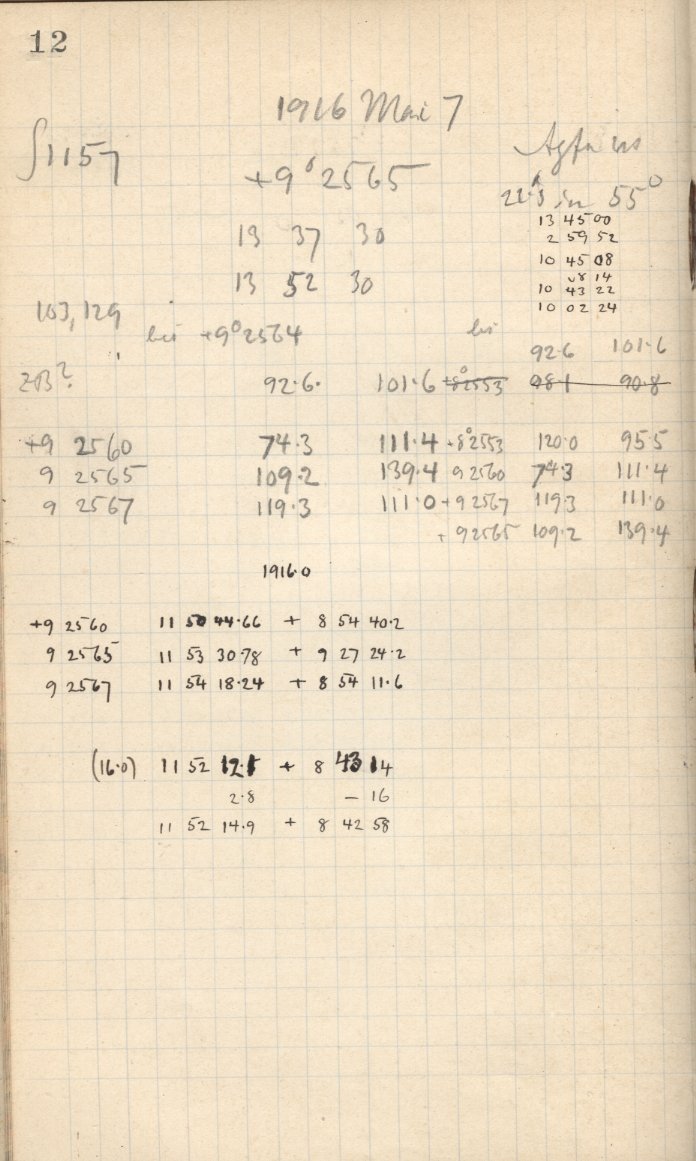 12
1916 Mai 7
∫1157
+9° 2565
Agfa
in 55°
13 37 30
13 52 30
13 45 00
2 59 52
10 45 08
14
10 43 22
10 02 24
103, 129
bis +9° 2564
bis
92.6 101.6
ZB?
92.6. 101.6 +8° 2553 98.1 90.8
+9 2560 74.3 111.4 +8° 2553 120.0 95.5
9 2565 109.2 139.4 9 2560 74.3 111.4
9 2567 119.3 111.0 +9 2567 119.3 111.0
+9 2565 109.2 139.4
1916.0
+9 2560 11 50 44.66 + 8 54 40.2
9 2565 11 53 30.78 + 9 27 24.2
9 2567 11 54 18.24 + 8 54 11.6
(16.0) 11 52 12.1 + 8 43 14
2.8 – 16
11 52 14.9 + 8 42 58